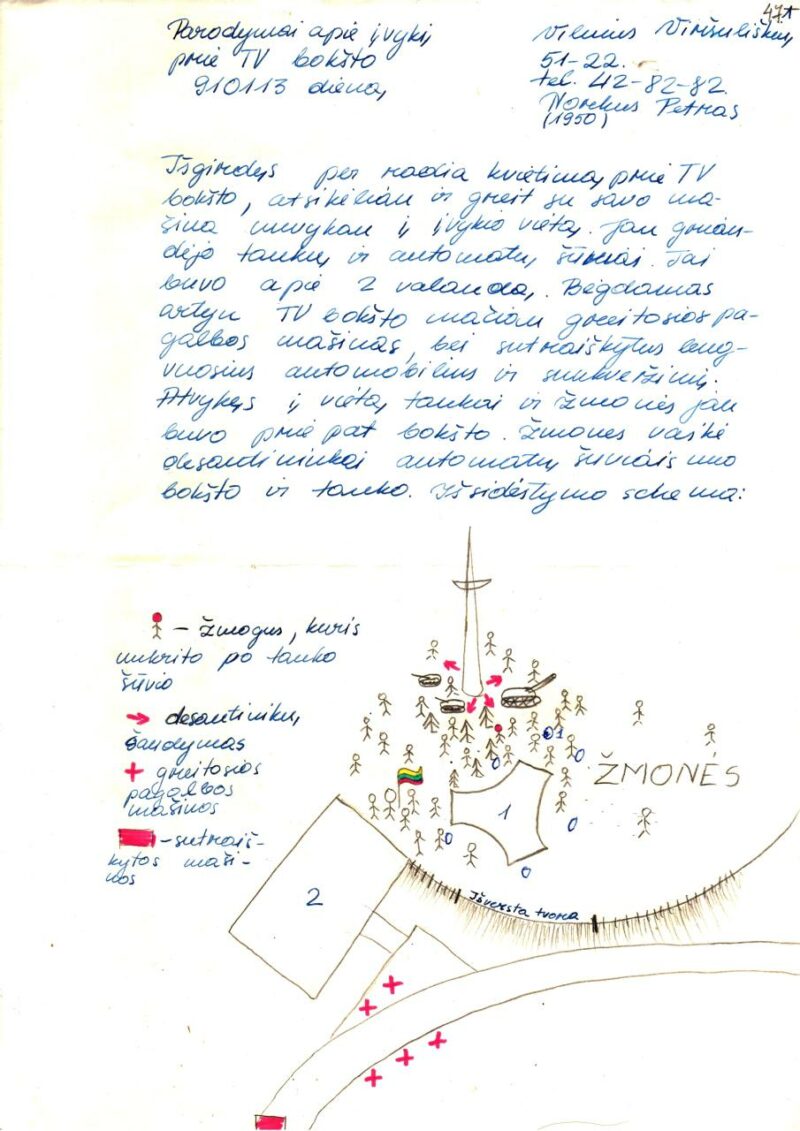 47
Parodymai apie įvykį
prie TV bokšto
910113 dieną
Vilnius Viršuliškių
51-22.
tel. 42-82-82.
Norkus Petras
(1950)
Išgirdęs per radia kvietimą prie TV
bokšto, atsikėliau ir greit su savo ma-
šina nuvykau į įvykio vietą. Jau griau-
dėjo tankų ir automatų šūviai. Tai
buvo apie 2 valandą. Bėgdamas
artyn TV bokšto mačiau greitosios pa-
galbos mašinas, bei sutraiškytus leng-
vuosius automobilius ir sunkvežimį.
Atvykęs į vietą tankai ir žmonės jau
buvo prie pat bokšto. Žmones vaikė
desantininkai automatų šūviais nuo
bokšto ir tanko. Išsidėstymo schema:
– žmogus, kuris
nukrito po tanko
šūvio
desantinikų
šaudymas
greitosios
pagalbos
mašinos
– sutraiš-
kytos maši-
nos
1
ŽMONĖS
1
2
Išversta tvora